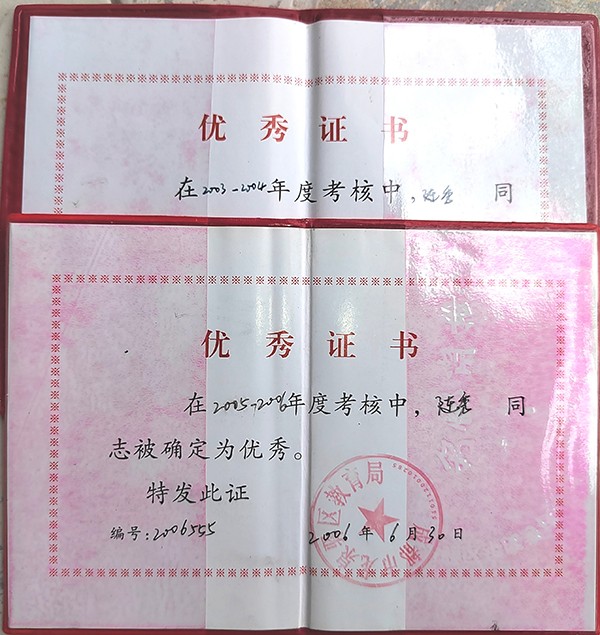 优秀证书
在2003-2004年度考核中，陈 同
优秀证书
在2005-2006年度考核中，陈 同
志被确定为优秀。
特发此证
编号：2006555
2006年6月30日
成都市龙泉驿区教育局